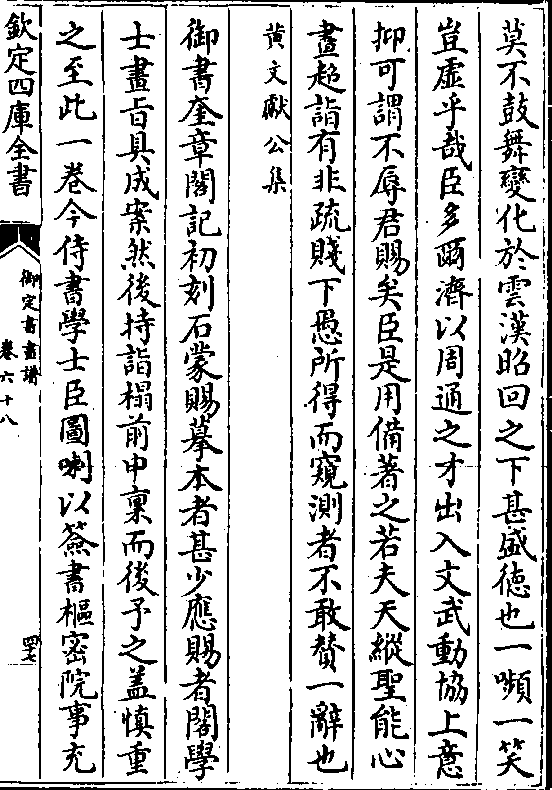 莫不鼓舞變化於雲漢昭回之下甚盛徳也一嚬一笑
豈虚乎哉臣多爾濟以周通之才出入文武動協上意
抑可謂不辱君賜矣臣是用備著之若夫天縱聖能心
畫超詣有非疏賤下愚所得而窺測者不敢贊一辭也
黄文獻公集
御書奎章閣記初刻石蒙賜摹本者甚少應賜者閣學
士畫旨具成案然後持詣榻前申稟而後予之盖慎重
之至此一卷今侍書學士臣圖喇以簽書樞密院事充
欽定四庫全書
御定書畫譜
卷六十八
四七